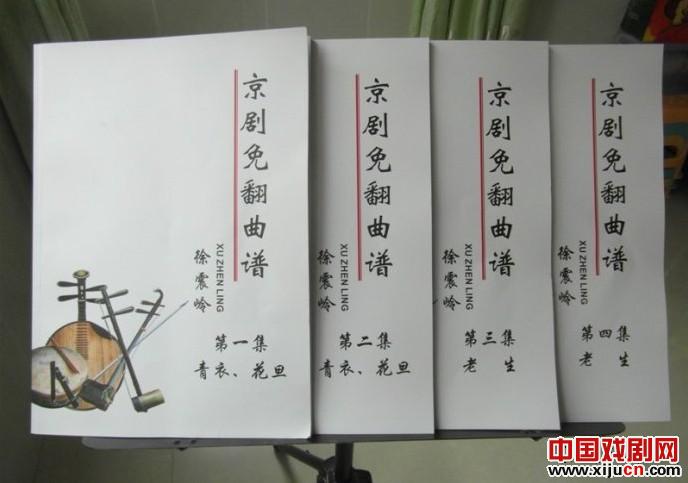 京剧免翻曲谱
徐震岭
XU ZHEN LING
第一集
青衣、花旦
京剧免翻曲谱
徐震岭
XU ZHEN LING
第二集
青衣、花旦
京剧免翻曲谱
徐震岭
XU ZHEN LING
第三集
老生
京剧免翻曲谱
徐震岭
XU ZHEN LING
第四集
老生
中国戏剧网
www.xijucn.com